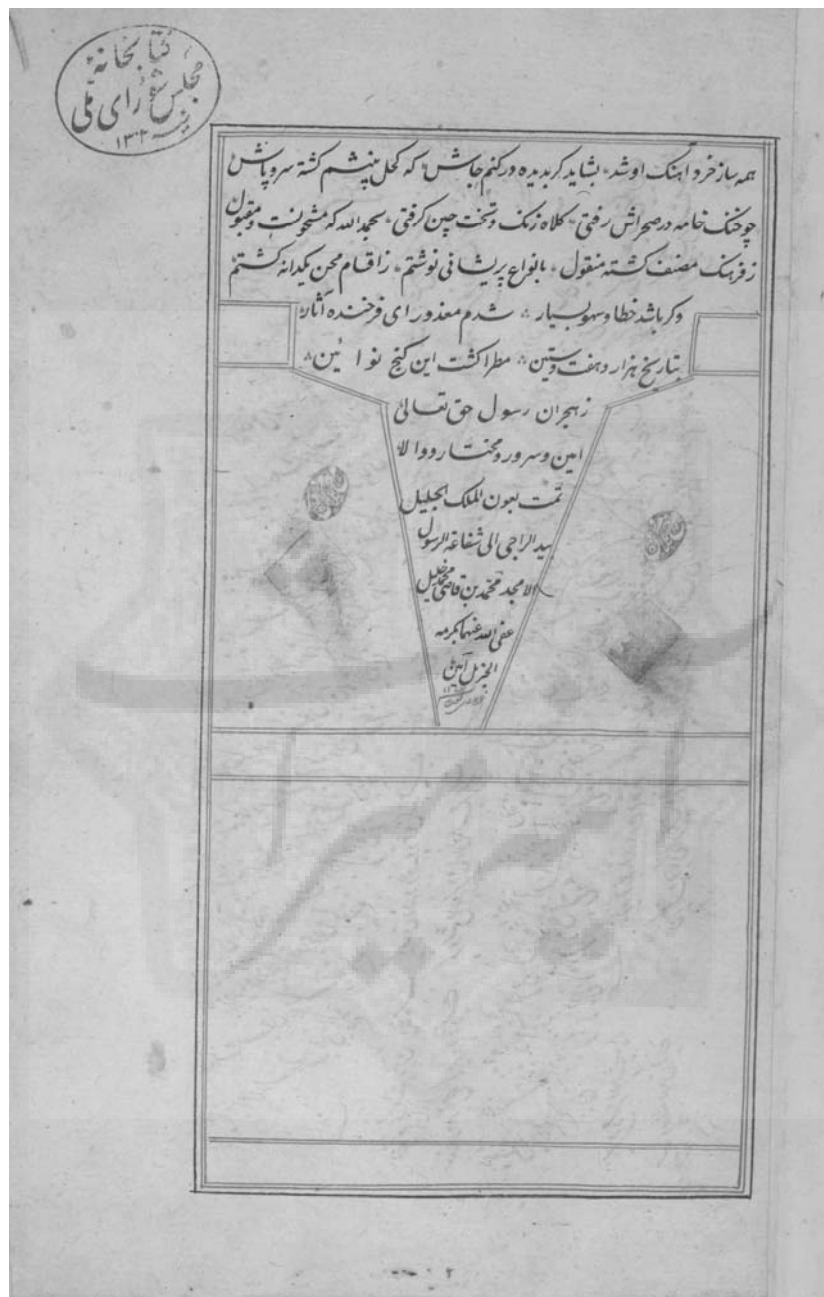 کتابخانهٔ
مجلس شورای ملی
۱۳۰۲
همه ساز خرد آهنک او شد بشاید کر بدیده در کنم جاش که کحل بینشم کشته سر و پاش
چو خنک خامه در صحراش رفتی کلاه زنک و تخت چین کرفتی بحمد الله که مشحونست و مقبول
ز فرهنک مصنف کشته منقول بانواع پریشانی نوشتم ز اقسام محن یکدانه کشتم
وکر باشد خطا و سهو بسیار شدم معذور ای فرخنده آثار
بتاریخ هزار و هفت و ستین مطرا کشت این کنج نو ائین
ز هجران رسول حق تعالی
امین و سرور و مختار و والا
تمت بعون الملک الجلیل
بید الراجی الی شفاعة الرسول
الامجد محمد بن قاضی محمد خلیل
عفی الله عنهما بکرمه
الجزیل آمین